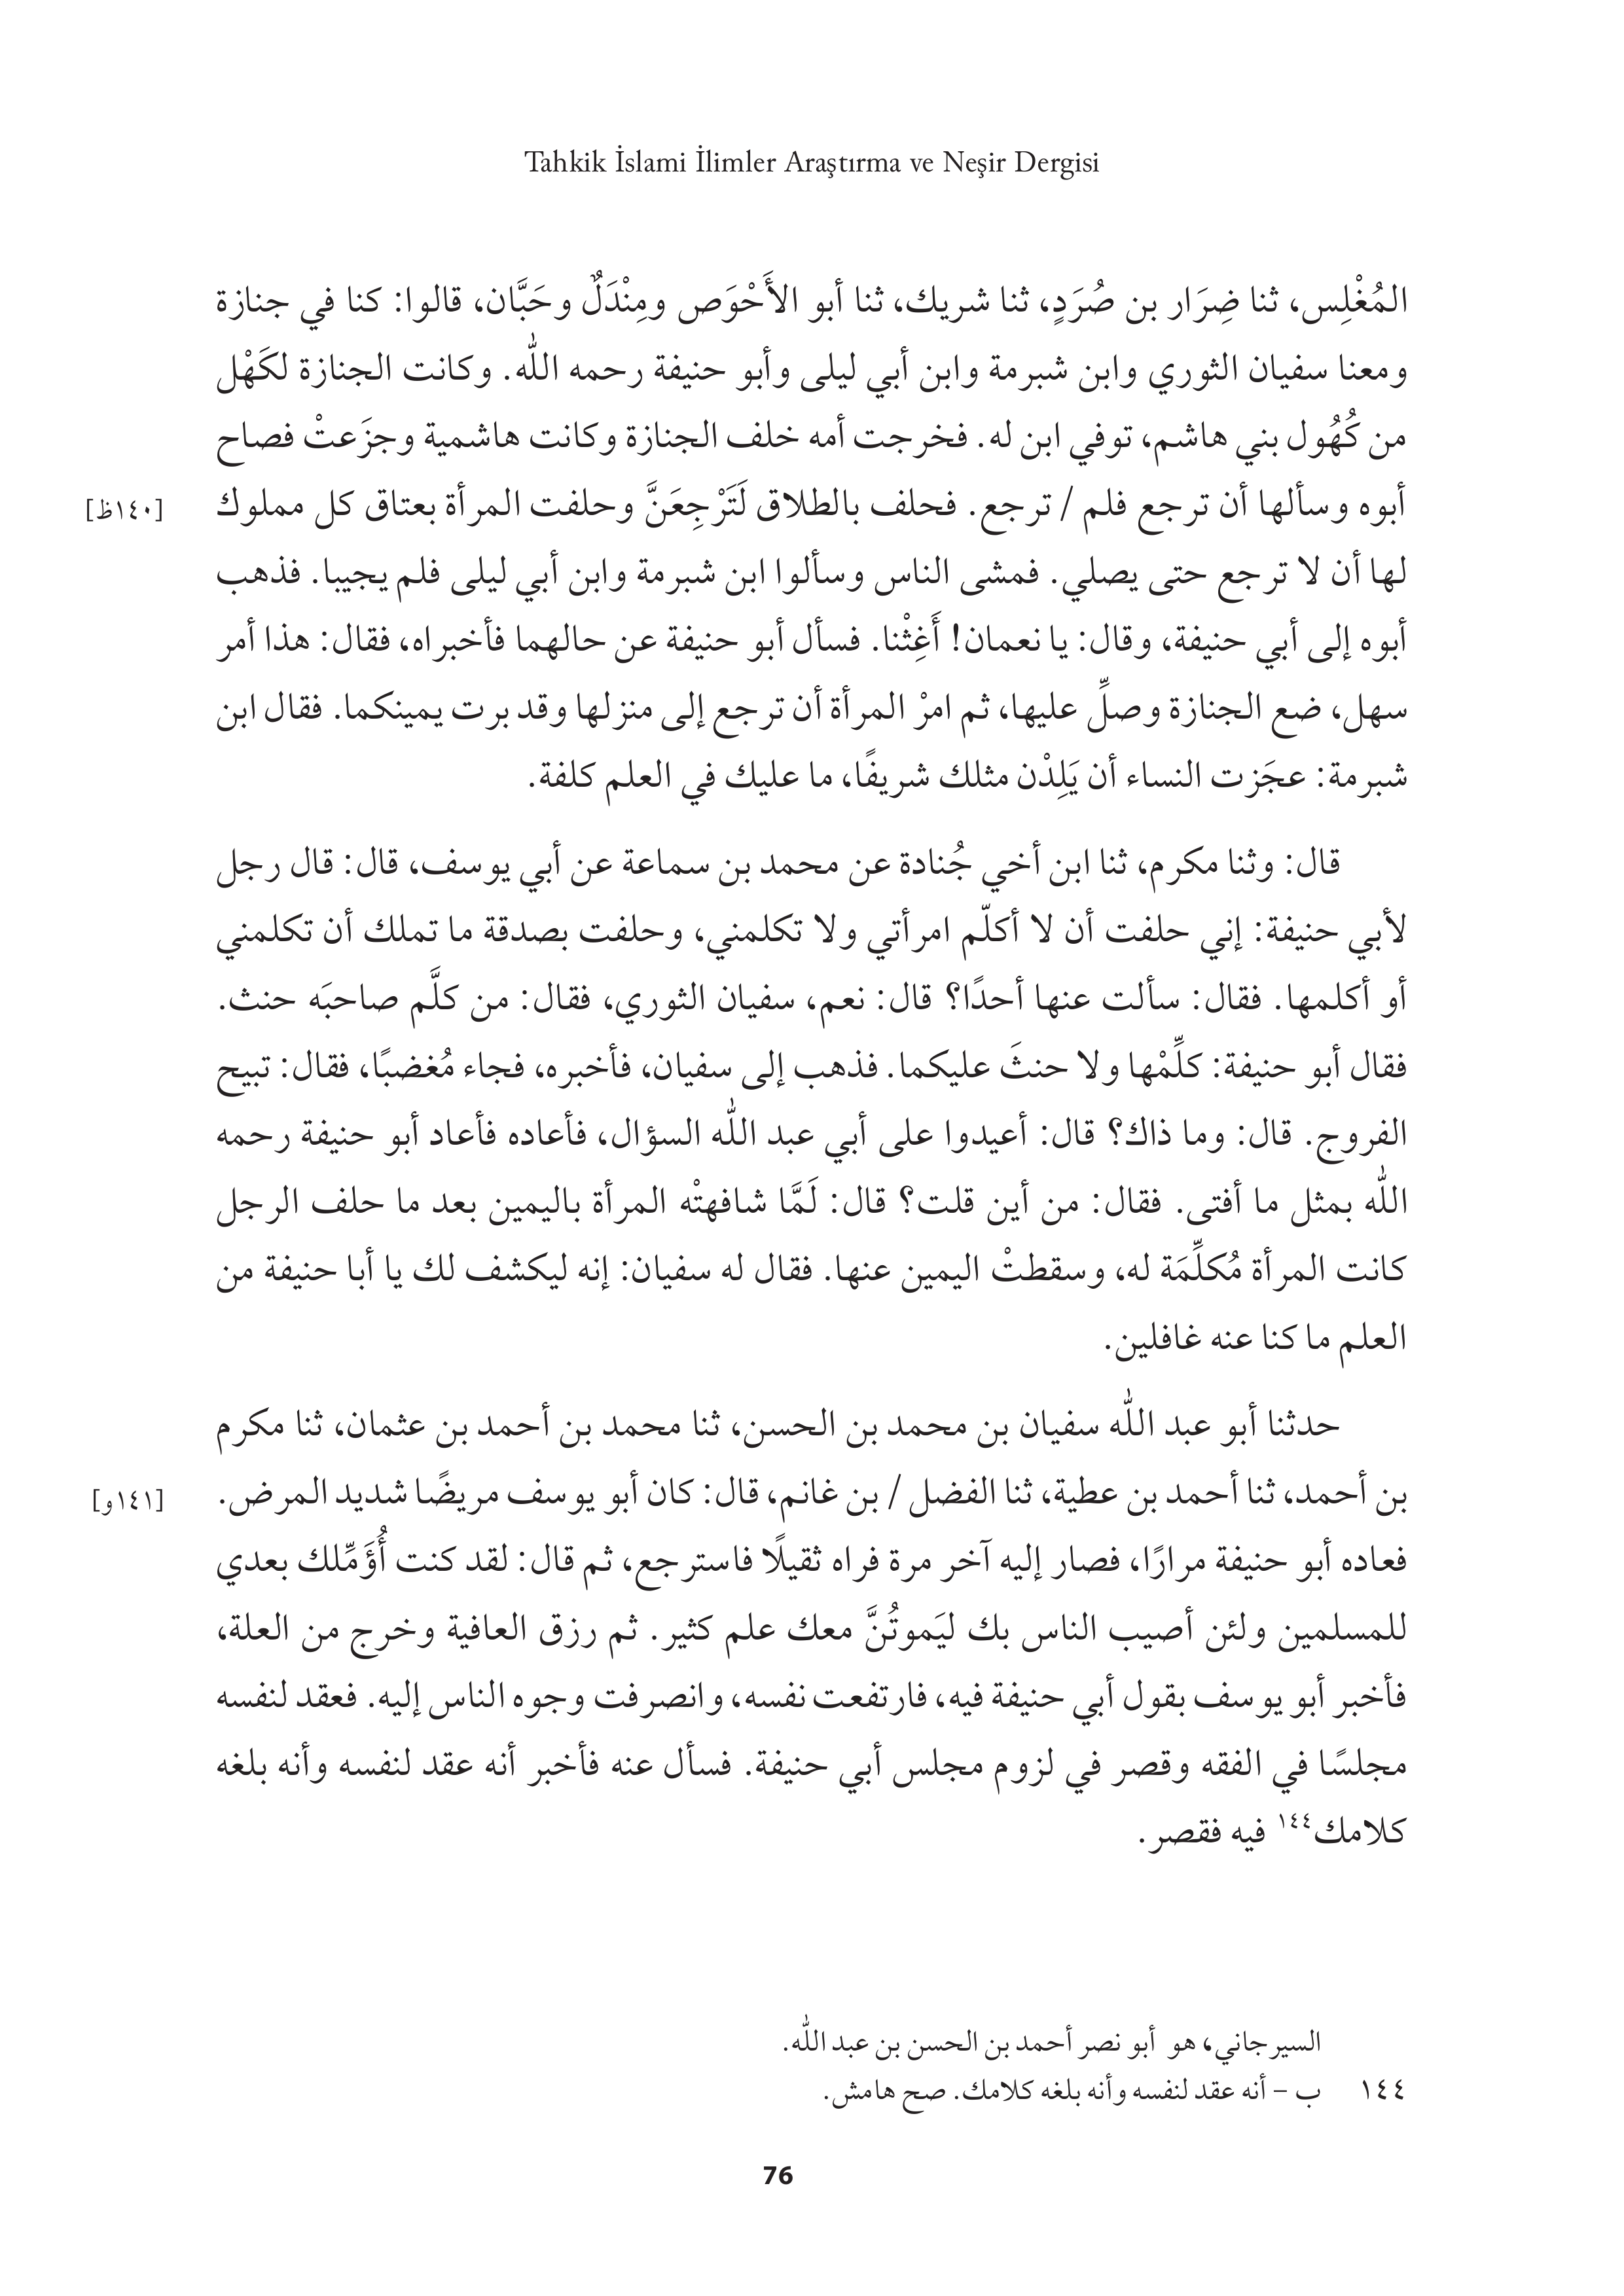 Tahkik İslami İlimler Araştırma ve Neşir Dergisi
المُغْلِس، ثنا ضِرَار بن صُرَدٍ، ثنا شريك، ثنا أبو الأَحْوَص ومِنْدَلٌ وحَبَّان، قالوا: كنا في جنازة
ومعنا سفيان الثوري وابن شبرمة وابن أبي ليلى وأبو حنيفة رحمه الله. وكانت الجنازة لكَهْل
من كُهُول بني هاشم، توفي ابن له. فخرجت أمه خلف الجنازة وكانت هاشمية وجزَعتْ فصاح
أبوه وسألها أن ترجع فلم / ترجع. فحلف بالطلاق لَتَرْجِعَنَّ وحلفت المرأة بعتاق كل مملوك
[١٤٠ظ]
لها أن لا ترجع حتى يصلي. فمشى الناس وسألوا ابن شبرمة وابن أبي ليلى فلم يجيبا. فذهب
أبوه إلى أبي حنيفة، وقال: يا نعمان! أَغِثْنا. فسأل أبو حنيفة عن حالهما فأخبراه، فقال: هذا أمر
سهل، ضع الجنازة وصلِّ عليها، ثم امرْ المرأة أن ترجع إلى منزلها وقد برت يمينكما. فقال ابن
شبرمة: عجَزت النساء أن يَلِدْن مثلك شريفًا، ما عليك في العلم كلفة.
قال: وثنا مكرم، ثنا ابن أخي جُنادة عن محمد بن سماعة عن أبي يوسف، قال: قال رجل
لأبي حنيفة: إني حلفت أن لا أكلّم امرأتي ولا تكلمني، وحلفت بصدقة ما تملك أن تكلمني
أو أكلمها. فقال: سألت عنها أحدًا؟ قال: نعم، سفيان الثوري، فقال: من كلَّم صاحبَه حنث.
فقال أبو حنيفة: كلِّمْها ولا حنثَ عليكما. فذهب إلى سفيان، فأخبره، فجاء مُغضبًا، فقال: تبيح
الفروج. قال: وما ذاك؟ قال: أعيدوا على أبي عبد الله السؤال، فأعاده فأعاد أبو حنيفة رحمه
الله بمثل ما أفتى. فقال: من أين قلت؟ قال: لَمَّا شافهتْه المرأة باليمين بعد ما حلف الرجل
كانت المرأة مُكلِّمَة له، وسقطتْ اليمين عنها. فقال له سفيان: إنه ليكشف لك يا أبا حنيفة من
العلم ما كنا عنه غافلين.
حدثنا أبو عبد الله سفيان بن محمد بن الحسن، ثنا محمد بن أحمد بن عثمان، ثنا مكرم
بن أحمد، ثنا أحمد بن عطية، ثنا الفضل / بن غانم، قال: كان أبو يوسف مريضًا شديد المرض.
[١٤١و]
فعاده أبو حنيفة مرارًا، فصار إليه آخر مرة فراه ثقيلًا فاسترجع، ثم قال: لقد كنت أُؤَمِّلك بعدي
للمسلمين ولئن أصيب الناس بك ليَموتُنَّ معك علم كثير. ثم رزق العافية وخرج من العلة،
فأخبر أبو يوسف بقول أبي حنيفة فيه، فارتفعت نفسه، وانصرفت وجوه الناس إليه. فعقد لنفسه
مجلسًا في الفقه وقصر في لزوم مجلس أبي حنيفة. فسأل عنه فأخبر أنه عقد لنفسه وأنه بلغه
كلامك١٤٤ فيه فقصر.
السيرجاني، هو أبو نصر أحمد بن الحسن بن عبد الله.
١٤٤ ب – أنه عقد لنفسه وأنه بلغه كلامك. صح هامش.
76